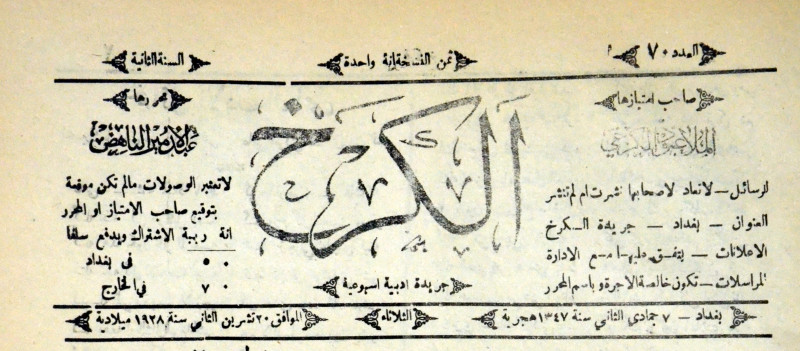 العدد ٧٠
ثمن النسخة انة واحدة
السنة الثانية
صاحب امتيازها
الملا عبود الكرخي
الرسائل — لا تعاد لاصحابها نشرت ام لم تنشر
العنوان — بغداد — جريدة الكرخ
الاعلانات — يتفق عليها مع الادارة
المراسلات — تكون خالصة الاجرة وباسم المحرر
الكرخ
جريدة ادبية اسبوعية
محررها
عبد الامير الناهض
لا تعتبر الوصولات مالم تكن موقعة
بتوقيع صاحب الامتياز او المحرر
انة ربية الاشتراك ويدفع سلفا
٥٠ في بغداد
٧٠ في الخارج
بغداد — ٧ جمادي الثاني سنة ١٣٤٧ هجرية
الثلاثاء
الموافق ٢٠ تشرين الثاني سنة ١٩٢٨ ميلادية